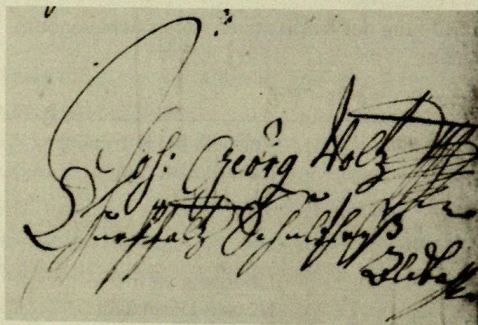 Joh: Georg Volz
Churpfaltz Schultheyß